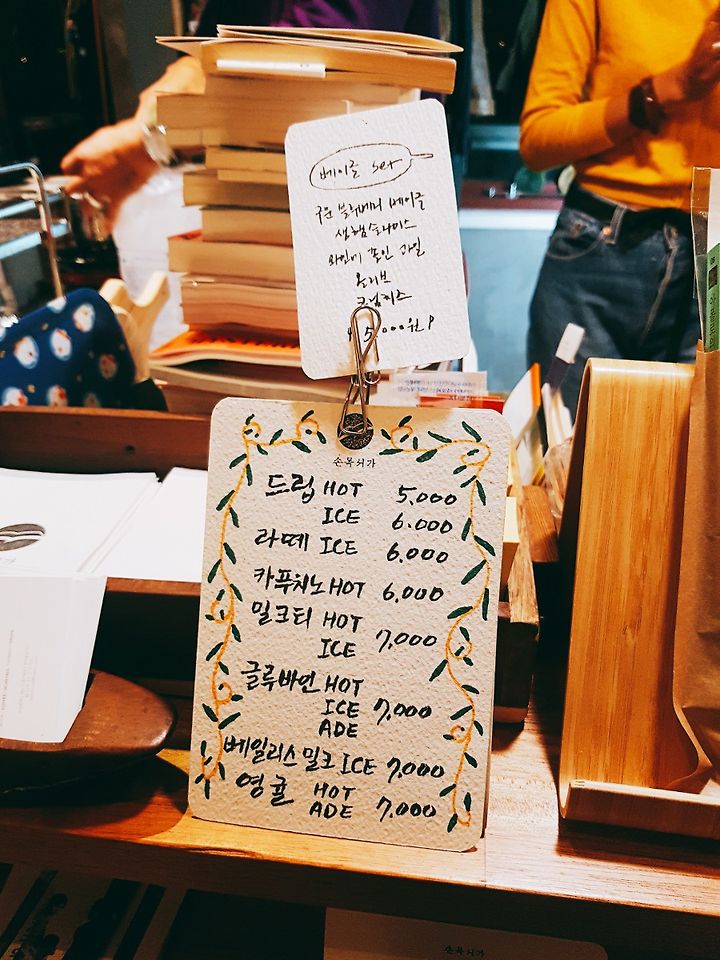 베이글 set
구운 블루베리 베이글
생햄슬라이스
와인에 졸인 과일
올리브
크림치즈
5,000원
손목서가
드립 HOT 5,000
ICE 6.000
라떼 ICE 6,000
카푸치노 HOT 6,000
밀크티 HOT
ICE 7,000
글루바인 HOT
ICE 7,000
ADE
베일리스 밀크 ICE 7,000
영귤 HOT
ADE 7,000
손목서가